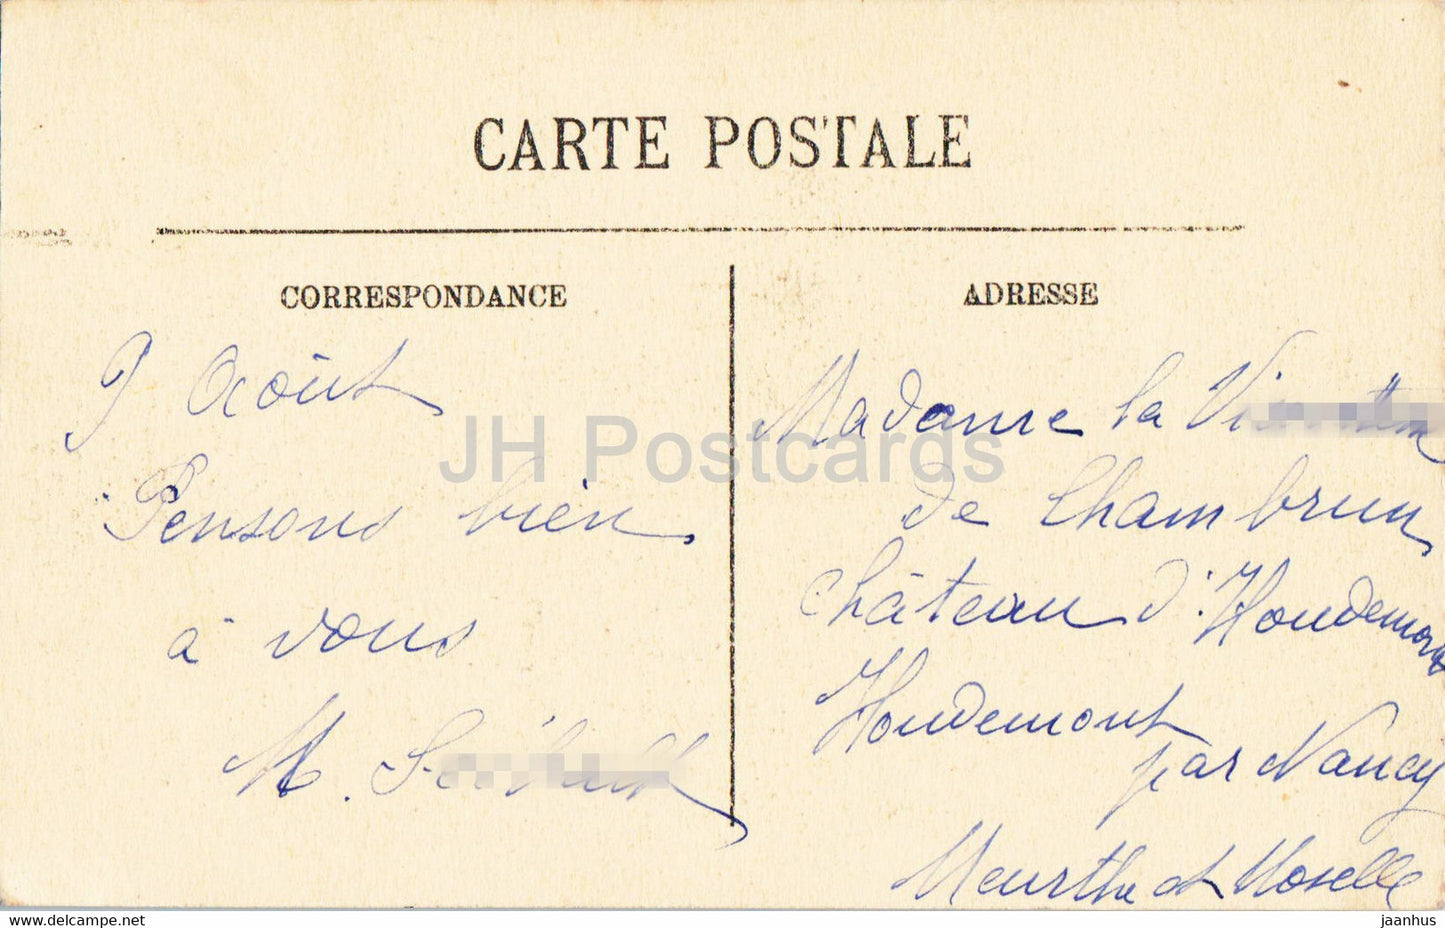 CARTE POSTALE
CORRESPONDANCE
9 Août
Pensons bien
à vous
M.
ADRESSE
Madame la
de Chambrun
château d'Houdemont
Houdemont
par Nancy
Meurthe et Moselle
JH Postcards
www.hippostcard.com
jaanhus